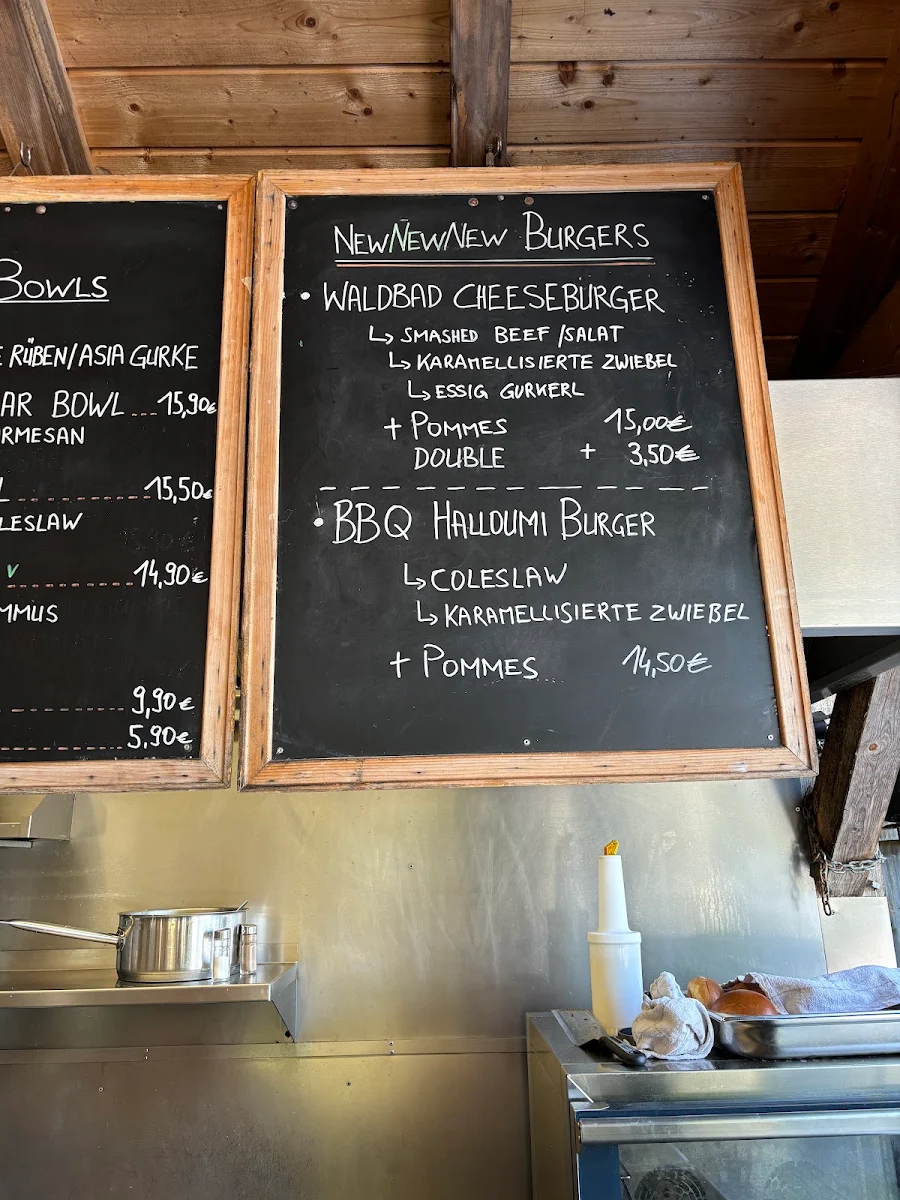 BOWLS
RÜBEN/ASIA GURKE
BOWL 15,90€
15,50€
V 14,90€
9,90€
5,90€
NEWNEWNEW BURGERS
• WALDBAD CHEESEBURGER
↳ SMASHED BEEF /SALAT
↳ KARAMELLISIERTE ZWIEBEL
↳ ESSIG GURKERL
+ POMMES 15,00€
DOUBLE + 3,50€
• BBQ HALLOUMI BURGER
↳ COLESLAW
↳ KARAMELLISIERTE ZWIEBEL
+ POMMES 14,50€